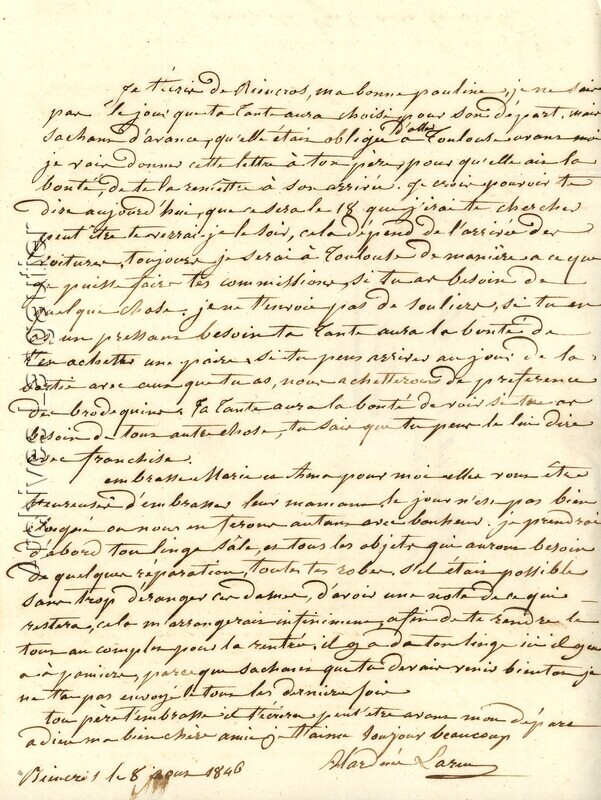 Je t'écris de Riencros, ma bonne pauline, je ne sais
pas le jour que ta Tante aura choisi pour son départ, mais
sachant d'avance, qu'elle était obligée D'aller à Toulouse avant moi
je vais donner cette lettre à ton père, pour qu'elle ait la
bonté, de te la remettre à son arrivée. Je crois pouvoir te
dire aujourd'hui, que ce sera le 18 que j'irai te chercher
peut être te verrai-je le soir, cela dépend de l'arrivée des
voitures, toujours je serai à Toulouse de manière a ce que
je puisse faire tes commissions, si tu as besoin de
quelque chose. je ne t'envoie pas de souliers, si tu en
as un pressant besoin ta Tante aura la bonté de
t'en achetter une paire, si tu peus arriver au jour de la
sortie avec ceux que tu as, nous achetterons de preference
des brodequins. Ta Tante aura la bonté de voir si tu as
besoin de tout autre chose, tu sais que tu peus le lui dire
avec franchise.
embrasse Marie et Anna pour moi elles vont être
heureuses d'embrasser leur maman. le jour n'est pas bien
éloigné ou nous en ferons autant avec bonheur. je prendrai
d'abord ton linge sâle, et tous les objets qui auront besoin
de quelques réparation, toutes tes robes. s'il était possible
sans trop déranger ces dames, d'avoir une note de ce qui
restera, cela m'arrangerais infiniment, afin de te rendre le
tout au complet pour la rentrée, il y a de ton linge ici il y en
a à pamiers, parceque sachant que tu devais venir bientot je
ne t'ai pas envoyé tous les dernière fois
ton père t'embrasse il t'écrira peut'être avant mon départ
adieu ma bien chere amie je t'aime toujour beaucoup
Riencros le 8 aout 1846
Archives-Ernegardiver